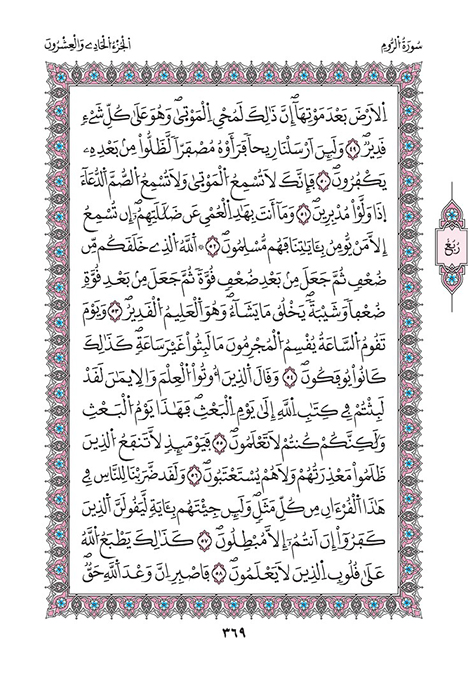 سُورَةُ الرُّومِ
الْجُزْءُ الْحَادِي وَالْعِشْرُونَ
اَلَارْضَ بَعْدَ مَوْتِهَآ إِنَّ ذَٰلِكَ لَمُحْيِ اِلْمَوْتَىٰ وَهُوَ عَلَىٰ كُلِّ شَےْءٖ
قَدِيرٌ ٤٩ وَلَئِنَ اَرْسَلْنَا رِيحاٗ فَرَأَوْهُ مُصْفَرّاٗ لَّظَلُّواْ مِنۢ بَعْدِهِۦ
يَكْفُرُونَ ٥٠ فَإِنَّكَ لَا تُسْمِعُ الْمَوْتَىٰ وَلَا تُسْمِعُ الصُّمَّ اَلدُّعَآءَ
اِذَا وَلَّوْاْ مُدْبِرِينَ ٥١ وَمَآ أَنتَ بِهَٰدِ اِلْعُمْيِ عَن ضَلَٰلَتِهِمُۥٓ إِن تُسْمِعُ
إِلَّا مَنْ يُّومِنُ بِـَٔايَٰتِنَا فَهُم مُّسْلِمُونَ ٥٢ اَللَّهُ الذِے خَلَقَكُم مِّن
ضُعْفٖ ثُمَّ جَعَلَ مِنۢ بَعْدِ ضُعْفٖ قُوَّةٗ ثُمَّ جَعَلَ مِنۢ بَعْدِ قُوَّةٖ
ضُعْفاٗ وَشَيْبَةٗ يَخْلُقُ مَا يَشَآءُ وَهُوَ الْعَلِيمُ الْقَدِيرُ ٥٣ وَيَوْمَ
تَقُومُ السَّاعَةُ يُقْسِمُ الْمُجْرِمُونَ مَا لَبِثُواْ غَيْرَ سَاعَةٖ كَذَٰلِكَ
كَانُواْ يُوفَكُونَ ٥٤ وَقَالَ الذِينَ أُوتُواْ الْعِلْمَ وَالِايمَٰنَ لَقَدْ
لَبِثْتُمْ فِے كِتَٰبِ اِللَّهِ إِلَىٰ يَوْمِ اِلْبَعْثِ فَهَٰذَا يَوْمُ الْبَعْثِ
وَلَٰكِنَّكُمْ كُنتُمْ لَا تَعْلَمُونَ ٥٥ فَيَوْمَئِذٖ لَّا تَنفَعُ الذِينَ
ظَلَمُواْ مَعْذِرَتُهُمْ وَلَا هُمْ يُسْتَعْتَبُونَ ٥٦ وَلَقَدْ ضَرَبْنَا لِلنَّاسِ فِے
هَٰذَا اَلْقُرْءَانِ مِن كُلِّ مَثَلٖ وَلَئِن جِئْتَهُم بِـَٔايَةٖ لَّيَقُولَنَّ الذِينَ
كَفَرُوٓاْ إِنَ اَنتُمُۥٓ إِلَّا مُبْطِلُونَ ٥٧ كَذَٰلِكَ يَطْبَعُ اللَّهُ
عَلَىٰ قُلُوبِ اِلذِينَ لَا يَعْلَمُونَ ٥٨ فَاصْبِرِ اِنَّ وَعْدَ اَللَّهِ حَقّٞ
رُبُع
٣٦٩